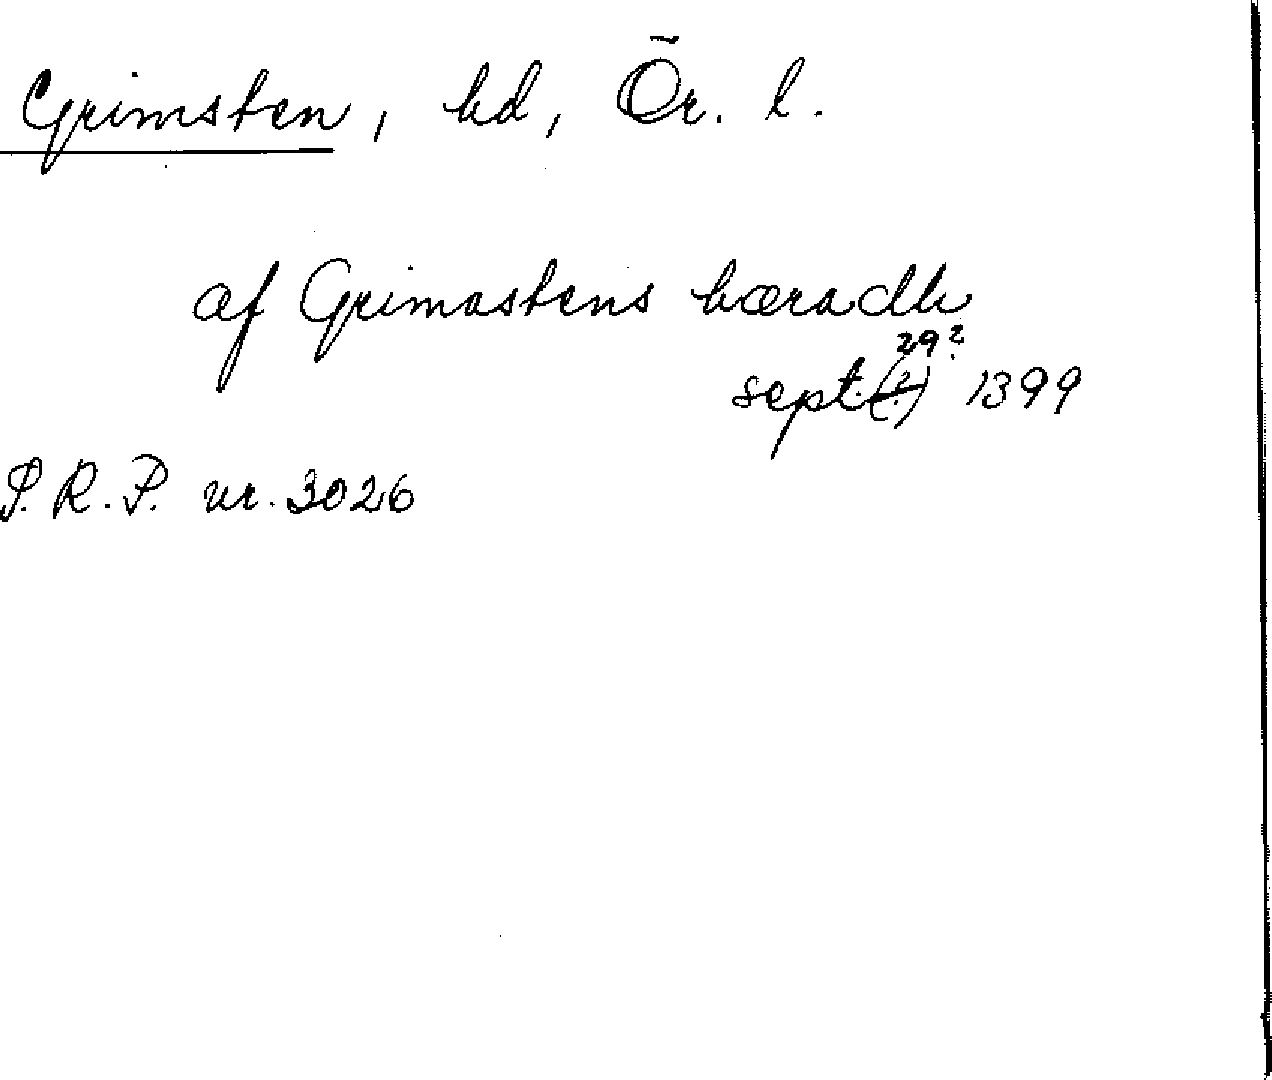 Grimsten, hd, Ör. l.
af Grimastens hæradh
29?
sept. (?) 1399
P. R. P. nr. 3026